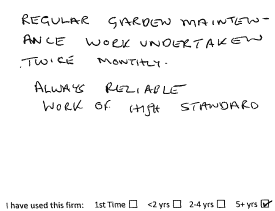 REGULAR GARDEN MAINTEN-
ANCE WORK UNDERTAKEN
TWICE MONTHLY.
ALWAYS RELIABLE
WORK OF HIGH STANDARD
I have used this firm: 1st Time ☐ <2 yrs ☐ 2-4 yrs ☐ 5+ yrs ☑